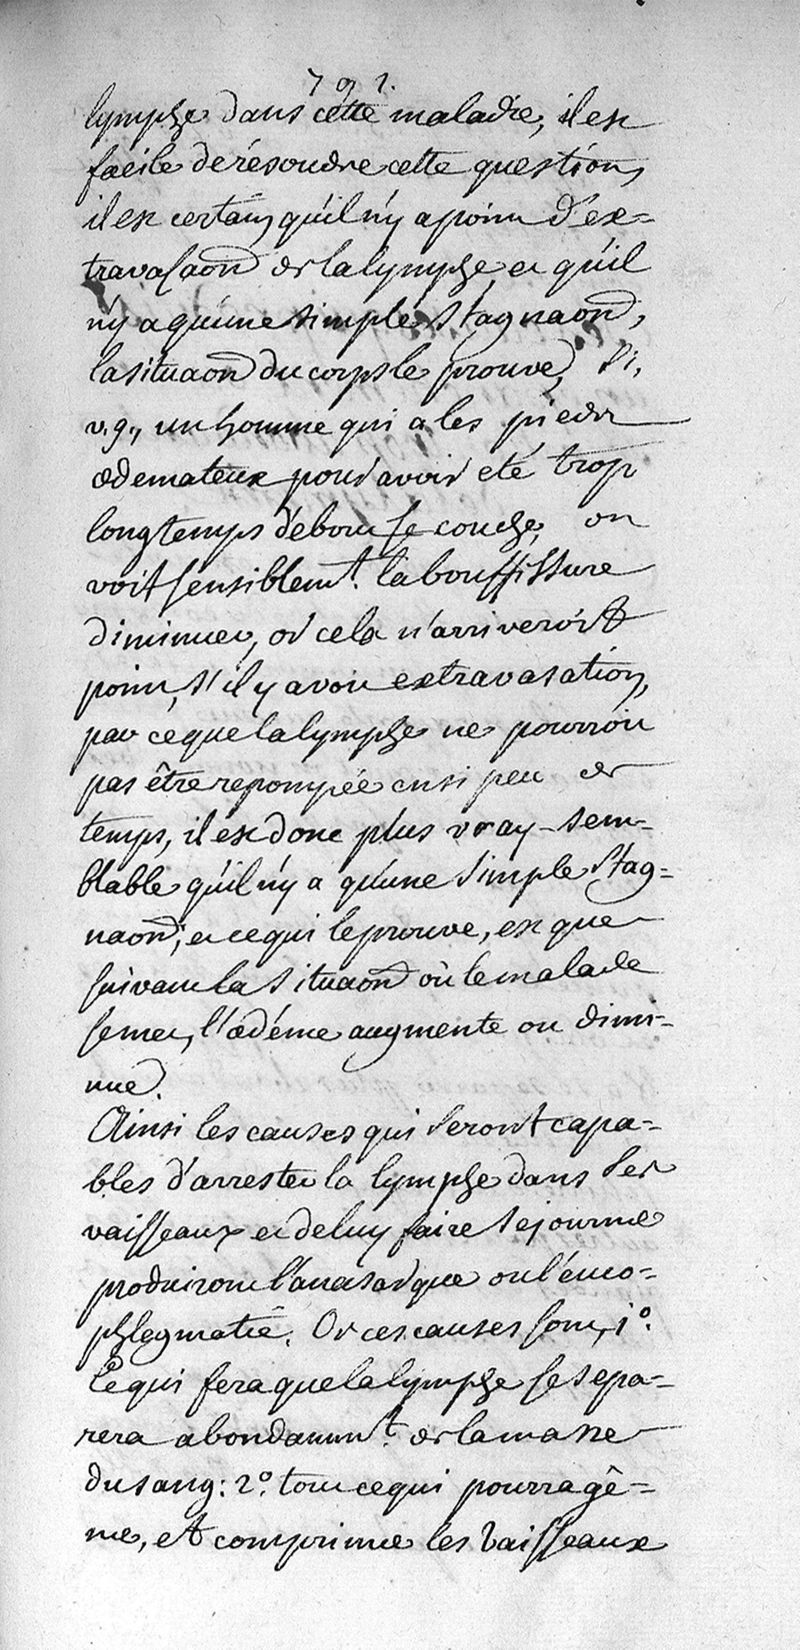 791.
lymphe dans cette maladie, il est
facile de résoudre cette question,
il est certain qu'il n'y a point d'ex=
travasaon de la lymphe, et qu'il
n'y a qu'une simple stagnaon,
la situaon du corps le prouve, si,
v.g., un homme qui a les pieds
œdemateux pour avoir eté trop
longtemps debout se couche, on
voit sensiblemt. la bouffissure
diminuer, or cela n'arriveroit
point, s'il y avoit extravasation,
par ce que la lymphe ne pourroit
pas être repompée en si peu de
temps, il est donc plus vray-sem=
blable qu'il n'y a qu'une simple stag=
naon; et ce qui le prouve, est que
suivant la situaon où le malade
se met, l'œdéme augmente ou dimi=
nue.
Ainsi les causes qui seront capa=
bles d'arrester la lymphe dans ses
vaisseaux et de luy faire sejourner
produiront l'anasarque ou l'euco=
phlegmatie. Or ces causes sont, 1°.
Ce qui fera que la lymphe se sepa=
rera abondammt. de la masse
du sang: 2°. tout ce qui pourra gê=
ner, et comprimer les vaisseaux